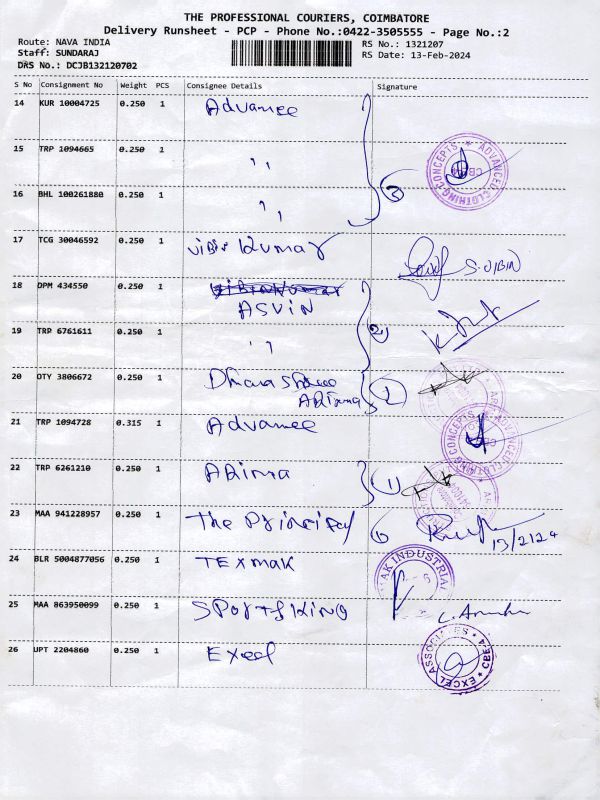 THE PROFESSIONAL COURIERS, COIMBATORE
Delivery Runsheet - PCP - Phone No.:0422-3505555 - Page No.:2
Route: NAVA INDIA
Staff: SUNDARAJ
DRS No.: DCJB132120702
RS No.: 1321207
RS Date: 13-Feb-2024
S No Consignment No Weight PCS Consignee Details Signature
14 KUR 10004725 0.250 1 Advance
15 TRP 1094665 0.250 1 ,,
ADVANCED CLOTHING CONCEPTS
16 BHL 100261880 0.250 1 ,, 3
17 TCG 30046592 0.250 1 Vibin Kumar S.VIBIN
18 DPM 434550 0.250 1
ASVIN
19 TRP 6761611 0.250 1 ,, 2
20 DTY 3806672 0.250 1 1
21 TRP 1094728 0.315 1 Advance
ADVANCED CLOTHING CONCEPTS
22 TRP 6261210 0.250 1 1
23 MAA 941228957 0.250 1 The 13/2/24
24 BLR 5004877056 0.250 1 TEXMAK
AK INDUSTRIAL
25 MAA 863950099 0.250 1 SPORTSKING
26 UPT 2204860 0.250 1 Excel
EXCEL ASSOCIATES CBE